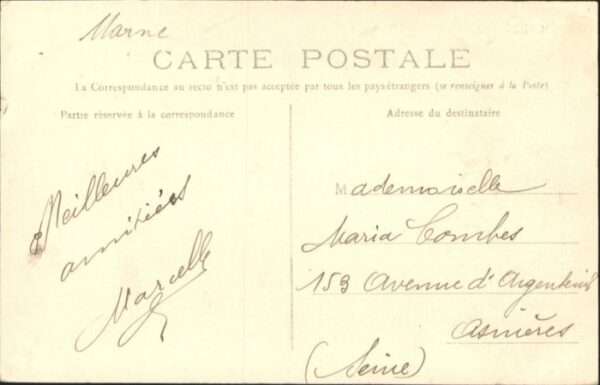 Marne
CARTE POSTALE
La Correspondance au recto n'est pas acceptée par tous les pays étrangers (se renseigner à la Poste)
Partie réservée à la correspondance
Adresse du destinataire
Meilleures
amitiés
Marcelle
Mademoiselle
Maria Combes
153 Avenue d'Argenteuil
Asnières
(Seine)